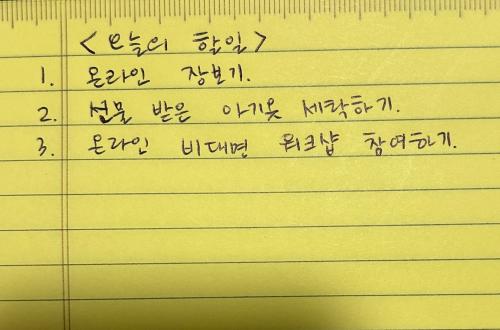 <오늘의 할일>
1. 온라인 장보기.
2. 선물 받은 아기옷 세탁하기.
3. 온라인 비대면 워크샵 참여하기.